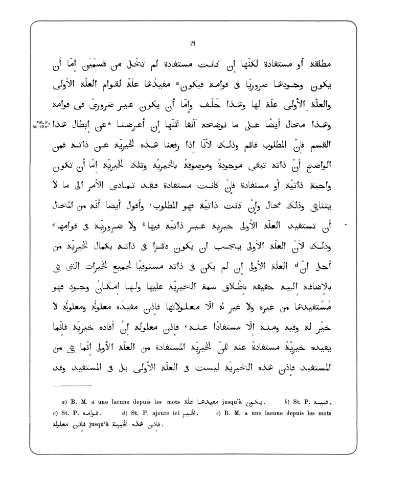 مطلقة أو مستفادة لكنّها إن كانت مستفادة لم تخل من قسمين إمّا أن
يكون وجودها ضروريّا فى قوامه فيكون مفيدها علّة لقوام العلّة الأولى
والعلّة الأولى علّة لها وهذا خلف وإمّا أن يكون غير ضرورىّ فى قوامه
وهذا محال أيضًا على ما نوضحه آنفا لكنّها إن أعرضنا عن إبطال هذا
القسم فإنّ المطلوب قائم وذلك لأنّا إذا رفعنا هذه الخيريّة عن ذاته فمن
الواضح أنّ ذاته تبقى موجودة وموصوفة بالخيريّة وتلك الخيريّة إمّا أن تكون
واجبة ذاتيّة أو مستفادة فإن كانت مستفادة فقد تمادى الأمر الى ما لا
يتناهى وذلك محال وإن كانت ذاتيّة فهو المطلوب وأقول أيضا أنّه من المحال
أن تستفيد العلّة الأولى خيرية غير ذاتيّة فيها ولا ضروريّة فى قوامها
وذلك لأنّ العلّة الأولى يجب ان يكون فائزا فى ذاته بكمال الخيريّة من
أجل أنّ العلّة الأولى إن لم يكن فى ذاته مستوفيًا لجميع الخيرات التى هى
بالاضافة اليه حقيقة باطلاق سمة الخيريّة عليها ولها امكان وجود فهو
مستفيدها من غيره ولا غير له الّا معلولاته فإذن مفيده معلوله ومعلوله لا
خير له وفيه ومنه الّا مستفادًا عنه فإذن معلوله إنْ أفاده خيريّة فإنّما
يفيده خيريّة مستفادة عنه لكنّ الخيريّة المستفادة من العلّة الأولى إنّما هى من
المستفيد فإذن هذه الخيريّة ليست فى العلّة الأولى بل فى المستفيد وقد
a) B. M. a une lacune depuis les mots مفيدها علّة jusqu'à يكون. b) St. P.
c) St. P. قوامه. d) St. P. ajoute ici الخير. e) B. M. a une lacune depuis les mots
فإذن معلوله jusqu'à فإذن هذه الخيرية.